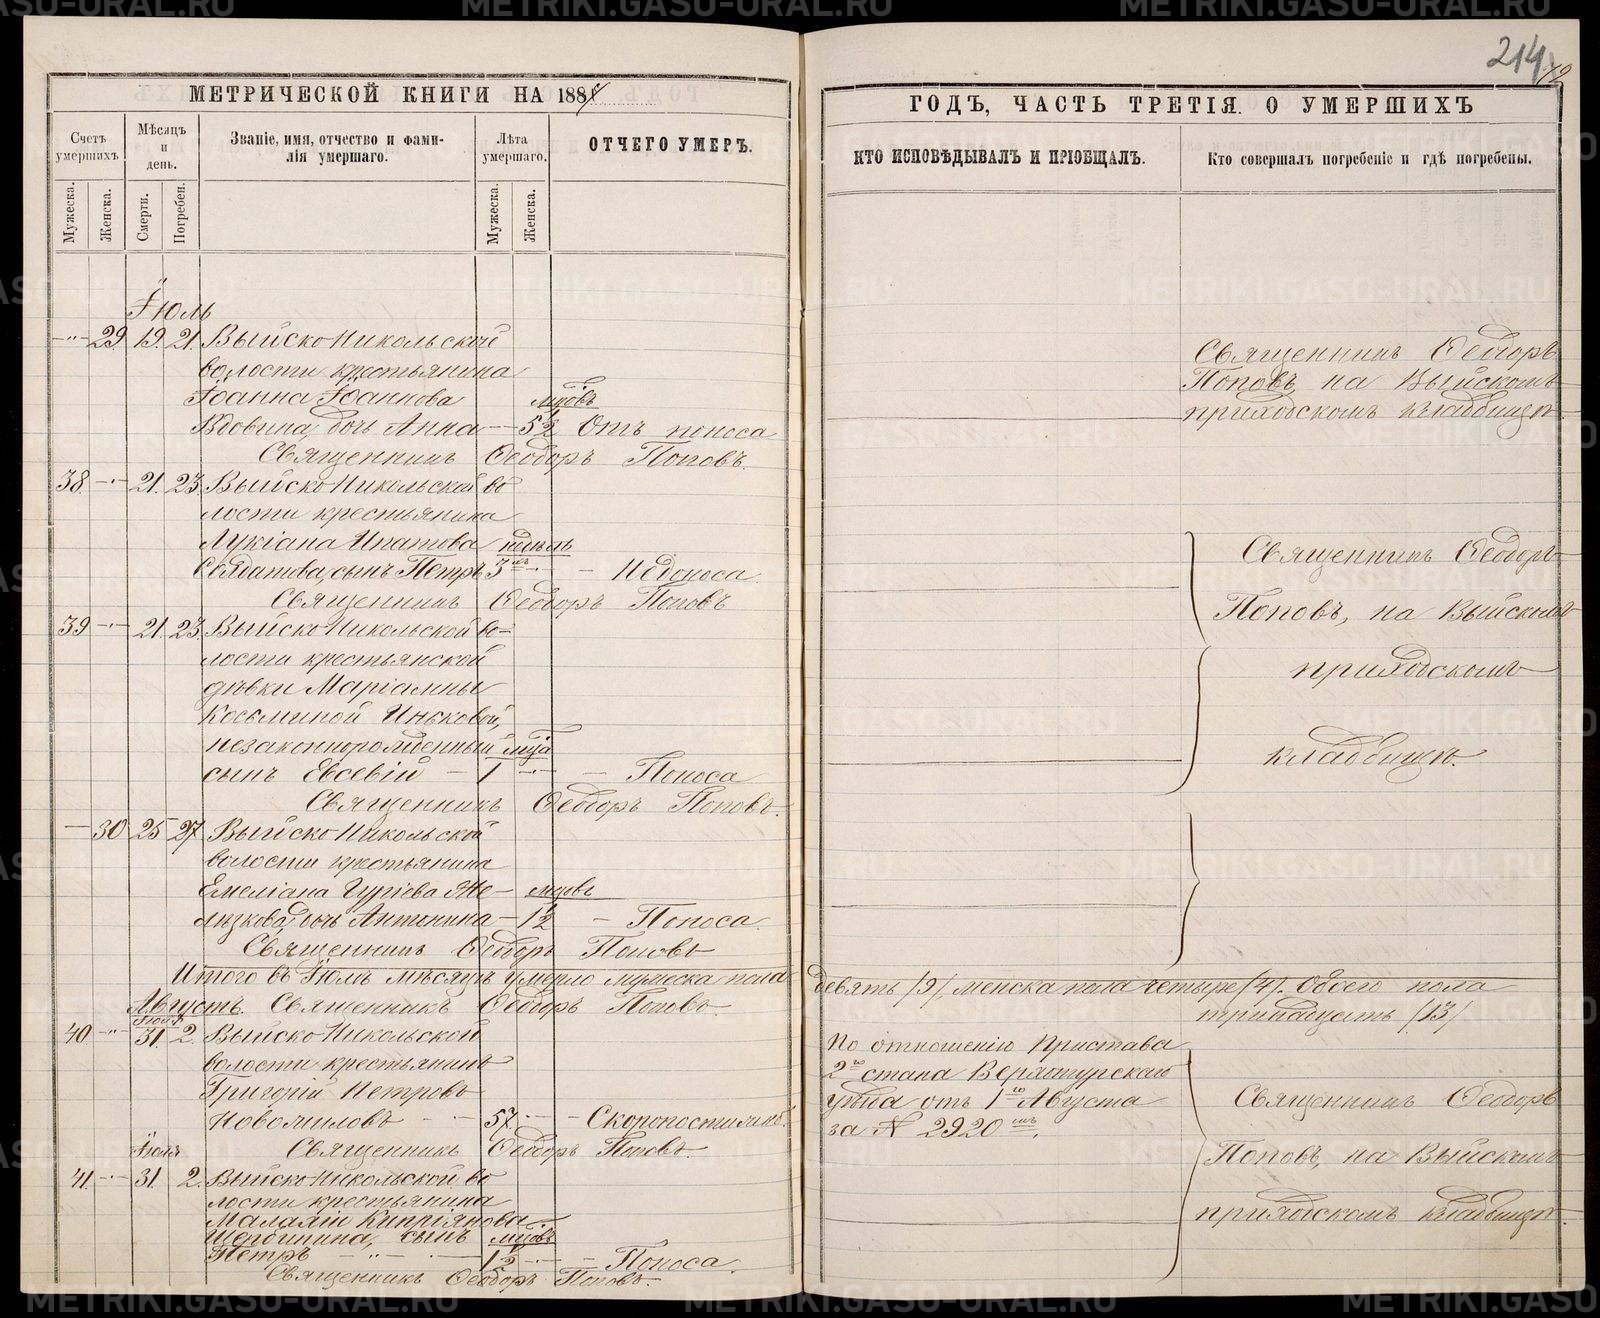 214
МЕТРИЧЕСКОЙ КНИГИ НА 188
ГОДЪ, ЧАСТЬ ТРЕТІЯ. О УМЕРШИХЪ
Счетъ умершихъ
Мѣсяцъ и день.
Званіе, имя, отчество и фами-
лія умершаго.
Лѣта умершаго.
ОТЧЕГО УМЕРЪ.
КТО ИСПОВѢДЫВАЛЪ И ПРІОБЩАЛЪ.
Кто совершалъ погребеніе и гдѣ погребены.
Мужеска.
Женска.
Смерти.
Погребен.
Мужеска.
Женска.
Іюль
29 19. 21. Выйско Никольской
волости крестьянина
Іоанна Іоаннова мцовъ
Вдовина, дочь Анна 5½ Отъ поноса
Священникъ Ѳеодоръ Поповъ.
Священникъ Ѳеодоръ
Поповъ на Выйскомъ
приходскомъ кладбищѣ.
38. 21. 23. Выйско Никольской во
лости крестьянина
Лукіана Ипатова недѣль
сынъ Петръ 3 Недоноса.
Священникъ Ѳеодоръ Поповъ
39 21. 23. Выйско Никольской во-
лости крестьянской
дѣвки Маріамны
Косьминой Иньковой,
незаконнорожденный мца
сынъ Евсевій 1 Поноса
Священникъ Ѳеодоръ Поповъ.
Священникъ Ѳеодоръ
Поповъ, на Выйскомъ
приходскомъ
кладбищѣ.
30 25 27 Выйско Никольской
волости крестьянина
Емеліана Гургіева Же- мцовъ
лѣзкова, дочь Антонина 1½ Поноса.
Священникъ Ѳеодоръ Поповъ
Итого въ Іюлѣ мѣсяцѣ умерло мужеска пола девять /9/, женска пола четыре /4/. Обоего пола
тринадцать /13/
Августъ. Священникъ Ѳеодоръ Поповъ.
Іюля
40 31. 2. Выйско Никольской
волости крестьянинъ
Григорій Петровъ
Новожиловъ 57. Скоропостижно.
Священникъ Ѳеодоръ Поповъ.
По отношенію Пристава
2го стана Верхотурскаго
уѣзда отъ 1го Августа
за № 2920
Священникъ Ѳеодоръ
Поповъ, на Выйскомъ
приходскомъ кладбищѣ.
Іюля
41. 31. 2. Выйско Никольской во
лости крестьянина
Малахіи Кипріянова
Щербинина, сынъ мцовъ
Петръ 1½ Поноса.
Священникъ Ѳеодоръ Поповъ.
METRIKI.GASO-URAL.RU